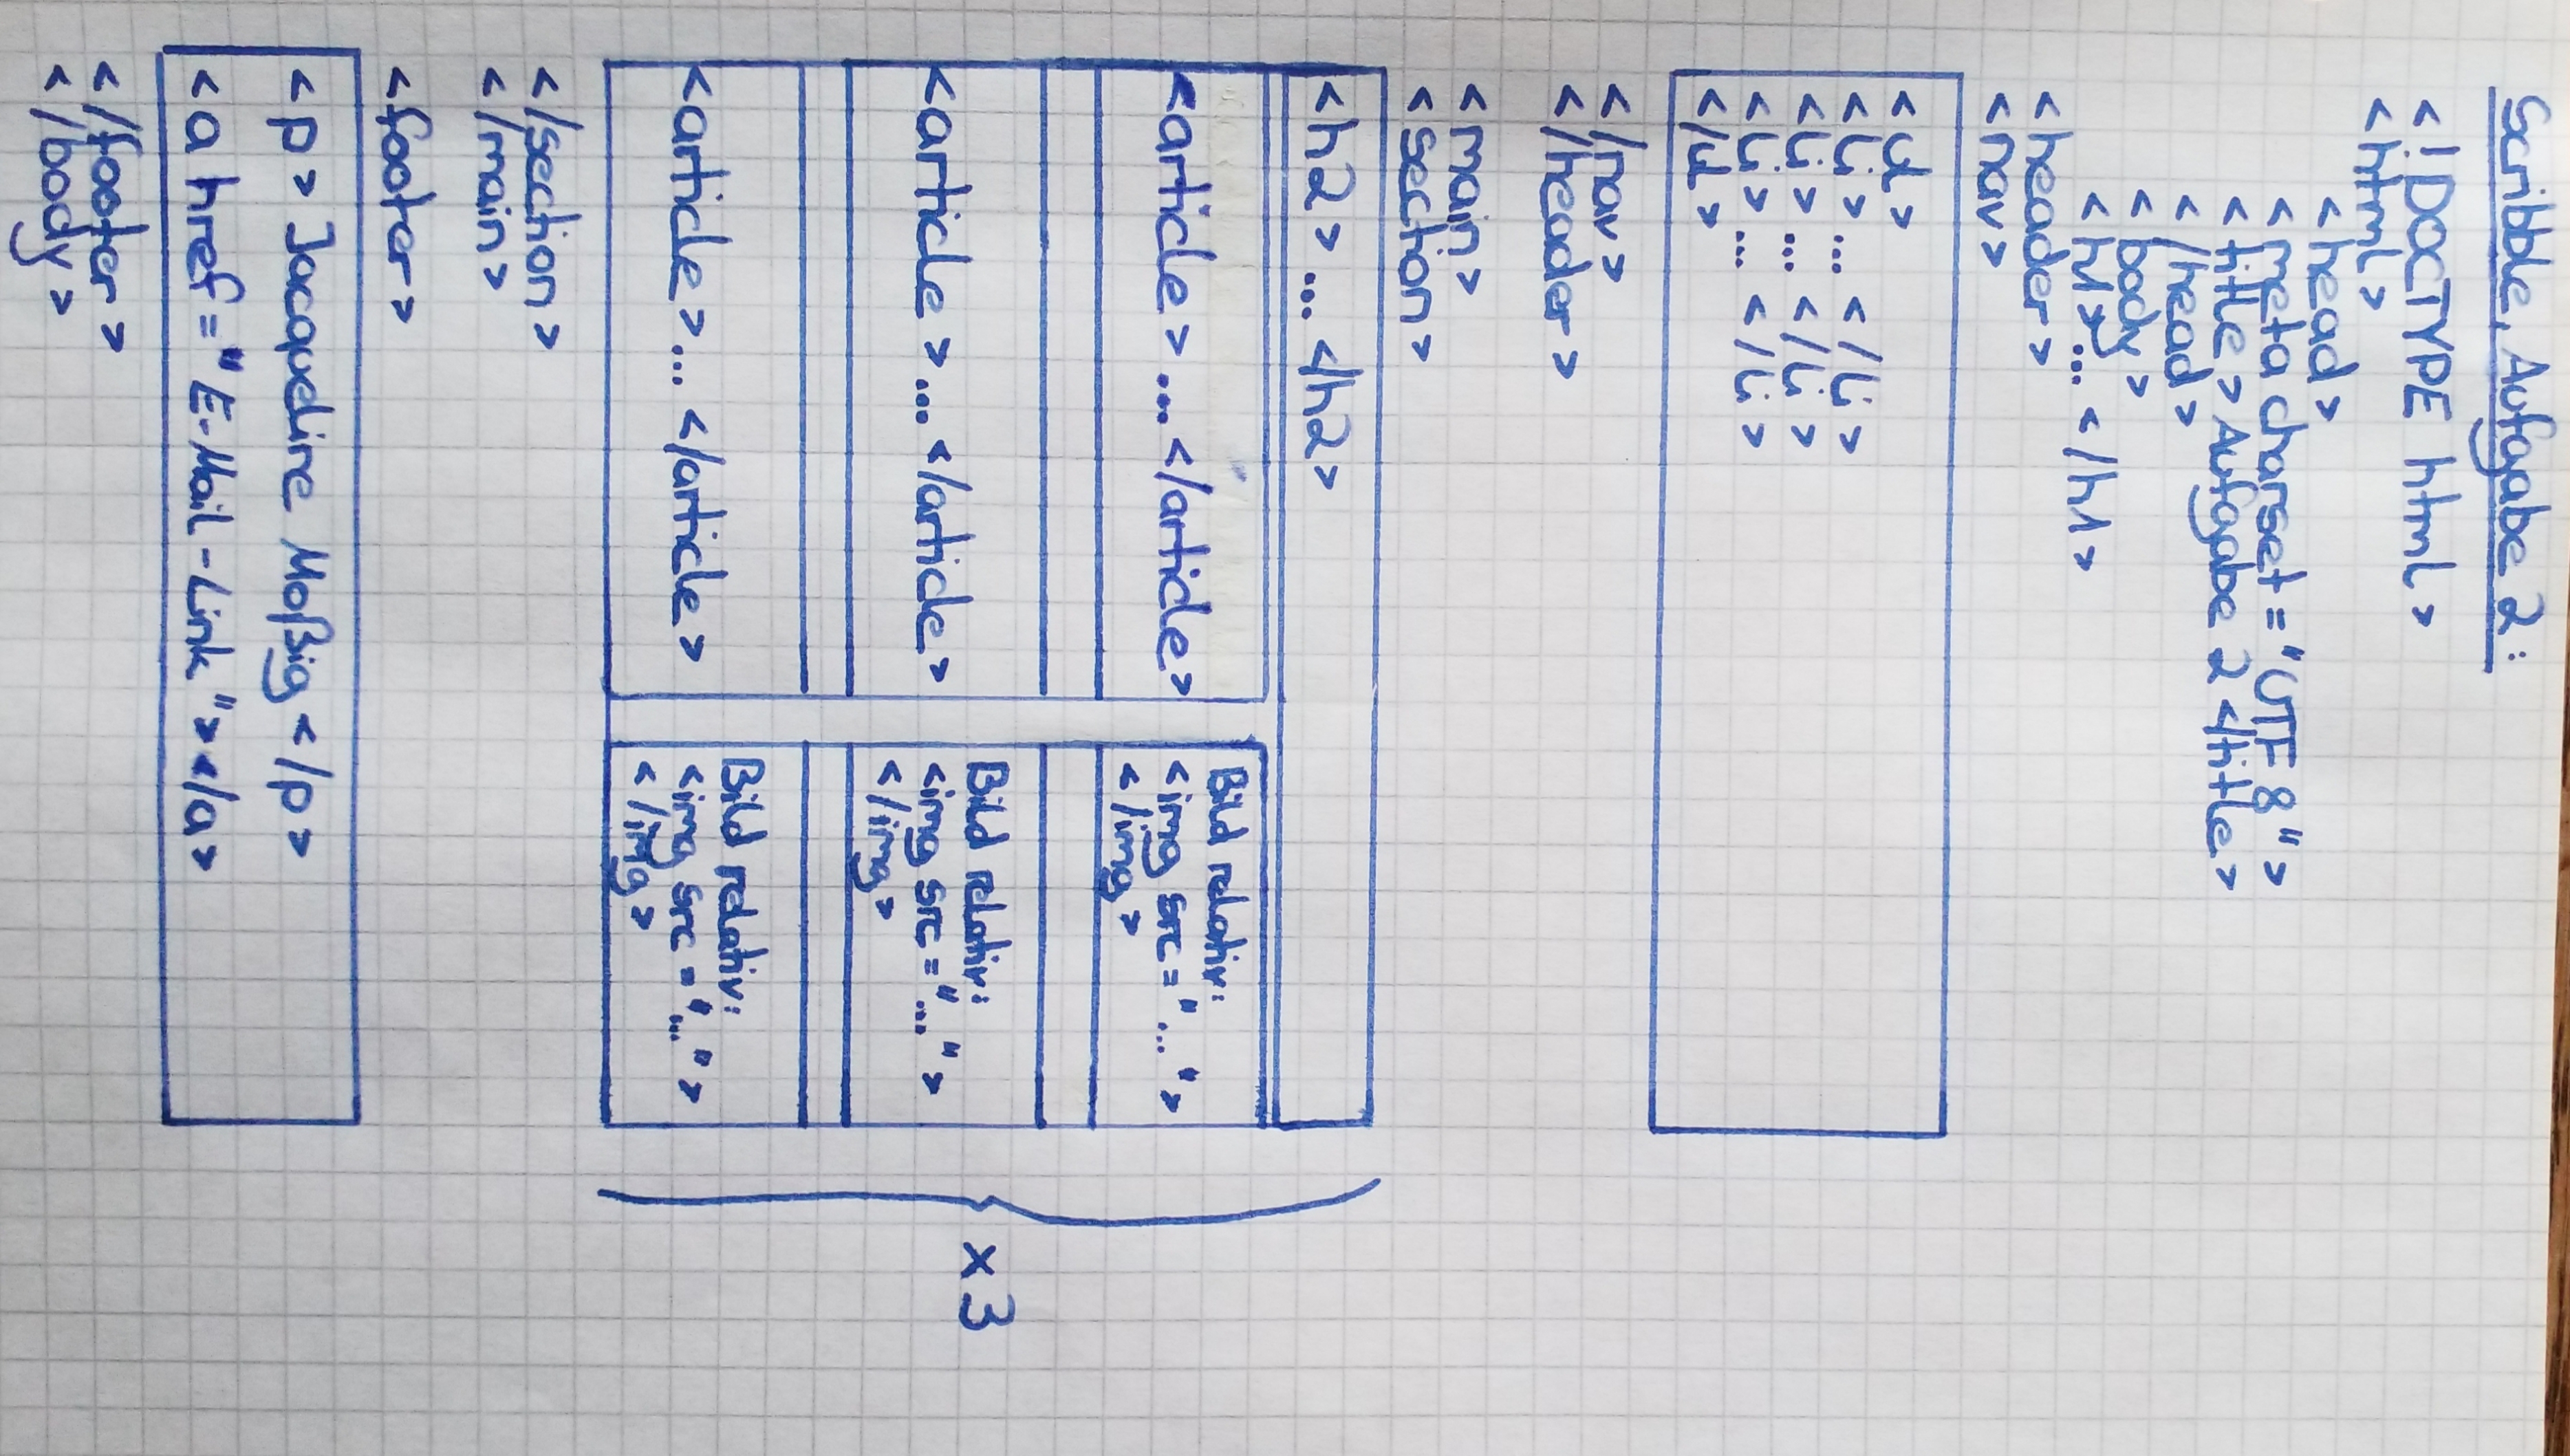 Scribble, Aufgabe 2:
<!DOCTYPE html>
<html>
<head>
<meta charset="UTF 8">
<title>Aufgabe 2</title>
</head>
<body>
<h1>... </h1>
<header>
<nav>
<ul>
<li> ... </li>
<li> ... </li>
<li> ... </li>
</ul>
</nav>
</header>
<main>
<section>
<h2> ... </h2>
<article> ... </article>
Bild relativ:
<img src="...">
</img>
<article> ... </article>
Bild relativ:
<img src="...">
</img>
<article> ... </article>
Bild relativ:
<img src="...">
</img>
x3
</section>
</main>
<footer>
<p> Jacqueline Moßig </p>
<a href="E-Mail-Link"></a>
</footer>
</body>